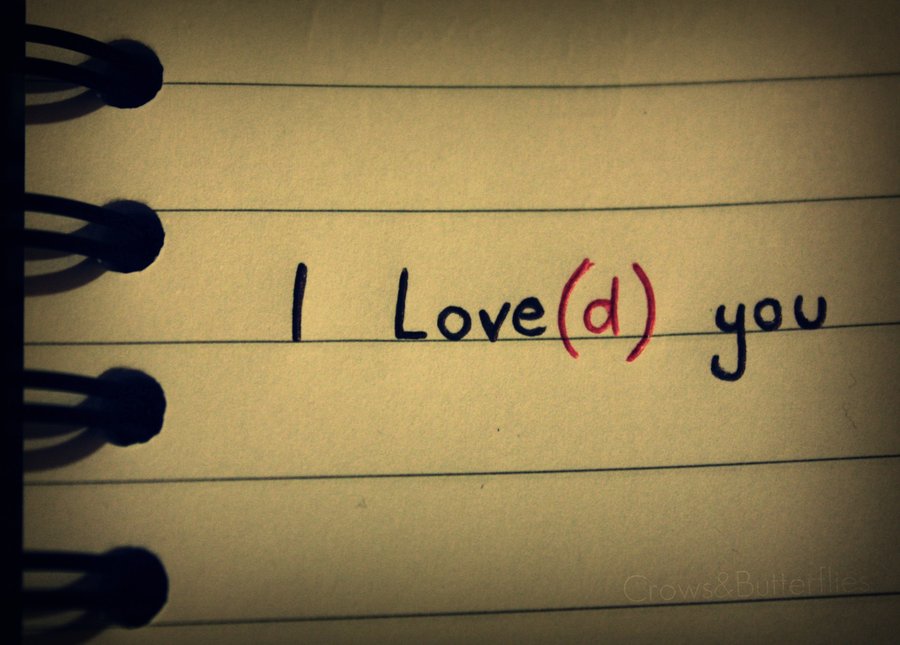 I Love(d) you
Crows&Butterflies